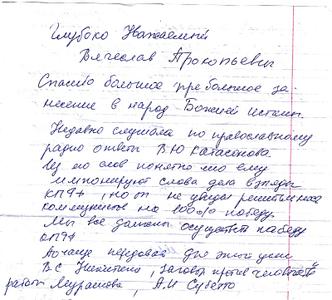 Глубоко Уважаемый
Вячеслав Прокопьевич
Спасибо большое пребольшое за
несение в народ Божией истины.
Недавно слушала по православному
радио ответы В.Ю Катасонова.
Из по слов понятно что ему
импонируют слова дела взгляды
КПРФ, но он не увидел решительных
коммунистов на 100% победу.
Мы все должны осуществить победу
КПРФ
передовая для этого дела
В.С Никитина, заговор против человечества
работы Мурашова, А.И Субетто